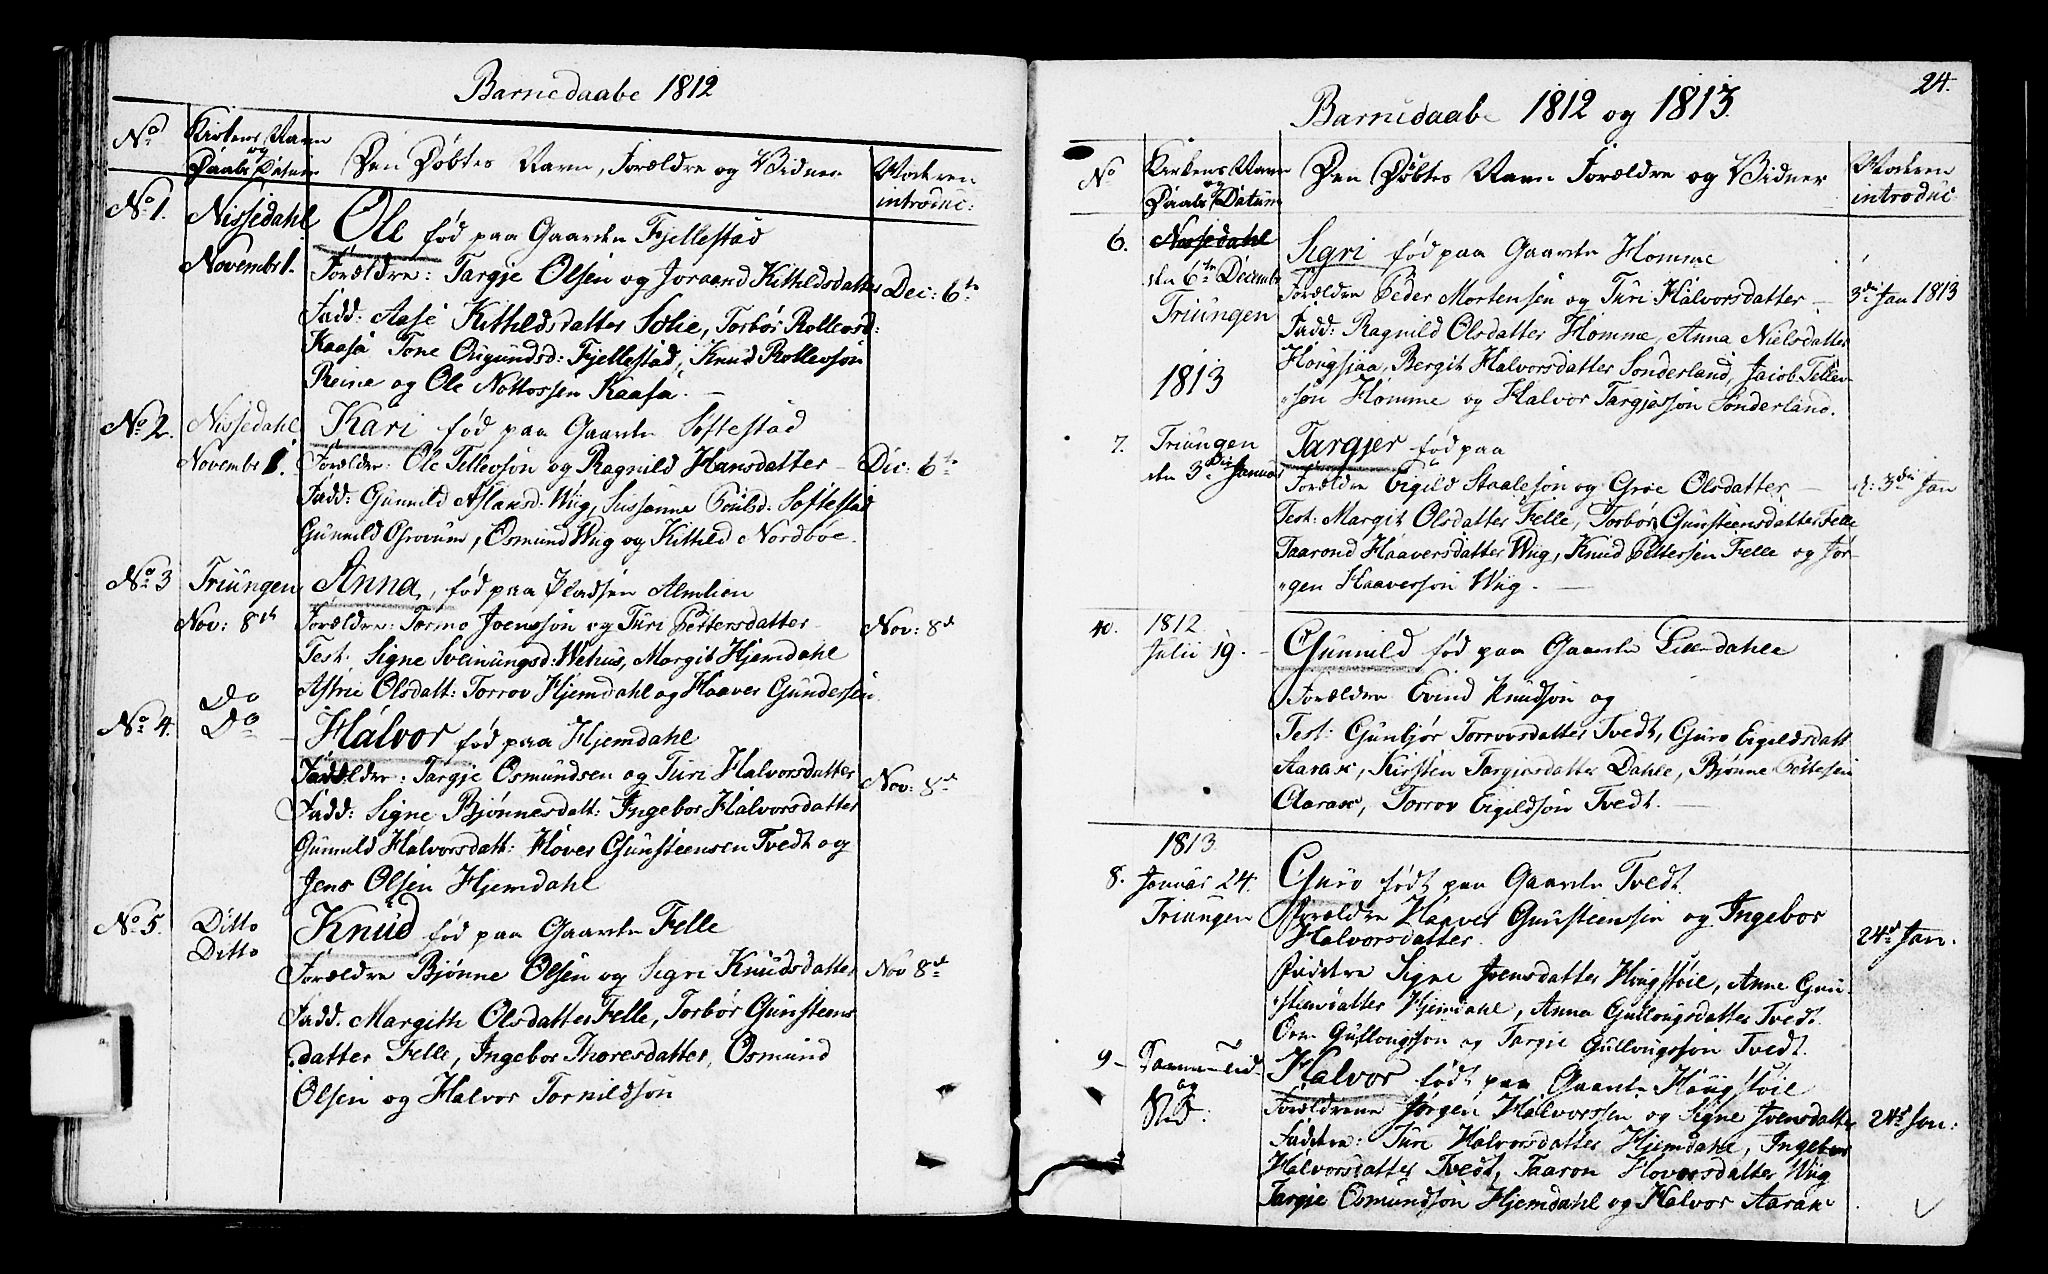 Barnedaabe 1812
No
Kirkens Navn
og
Daabs Datum
Den Døbtes Navn, Forældre og Vidner
Moderen
introduc:
No 1. Nissedahl Ole fød paa Gaarden Fjellestad
Novembr 1. Forældre: Targje Olsen og Joraand Kittildsdatter Dec: 6te
Fadd: Aase Kittildsdatter Solie, Torbor Rollevsd:
Kaasa Tone Osgundsd: Fjellestad, Knud Rollevson
Reine og Ole Nottossen Kaasa.
No 2. Nissedahl Kari fød paa Gaarden Softestad
Novembr 1. Forældre: Ole Tellevson og Ragnild Hansdatter Dec: 6te
Fadd: Gunnild Aslansd: Wiig, Sussanne Poulsd: Softestad
Gunnild Grovum, Osmund Wiig og Kittild Nordbøe.
No 3 Triungen Anna, fød paa Pladsen Almlien
Nov: 8de Forældre: Tormo Joensson og Turi Pettersdatter Nov: 8de
Test: Signe Sveinungsd: Wehus, Margit Hjemdahl
Astrie Olsdatt: Torrov Hjemdahl og Haaver Gundersen
Do
No 4. Do Halvor fød paa Hjemdahl
Forældre: Targje Osmundsen og Turi Halvorsdatter Nov: 8de
Fadd: Signe Bjønnesdatt: Ingebor Halvorsdatter
Gunnild Halvorsdatt: Hover Gunsteensen Tvedt og
Jens Olsen Hjemdahl
No 5. Ditto Knud fød paa Gaarden Felle
Ditto
Forældre Bjønne Olsen og Segri Knudsdatter Nov 8de
Fadd. Margith Olsdatter Felle, Torbor Gunsteens
datter Felle, Ingebor Thoresdatter, Osmund
Olsen og Halvor Tornildson
24.
Barnedaabe 1812 og 1813.
No
Kirkens Navn
og
Daabs Datum
Den Døbtes Navn Forældre og Vidner
Moderen
introduc.
6. Nissedahl Segri fød paa Gaarden Homme
den 6te Decembr Forældre Peder Mortensen og Turi Halvorsdatter 3die Jan 1813
Triungen Fadd: Ragnild Olsdatter Homme, Anna Nielsdatter
Hougsjaa, Bergit Halvorsdatter Sonderland, Jacob Tellev-
1813 "son Homme og Halvor Targjesson Sonderland.
7. Triungen Targjer fød paa
den 3die Januar Forældre Eigild Staaleson og Groe Olsdatter d: 3die Jan
Test: Margit Olsdatter Felle, Torbor Gunsteensdatter Felle
Taarond Haaversdatter Wiig, Knud Pettersen Felle og Jør-
"gen Haaverson Wiig.
40. 1812
Julii 19. Gunnild fød paa Gaarden
Forældre Evind Knudson og
Test: Gunbjør Torrovsdatter Tvedt, Guro Eigildsdatt
Aarax, Kirsten Targiersdatter Dahle, Bjønne Pettesen
Aarax, Torrov Eigildson Tvedt.
1813
8. Januar 24. Guro født paa Gaarden Tvedt
Triungen Forældre Haaver Gunsteensen og Ingebor
Halvorsdatter. 24de Jan.
Faddere Signe Joensdatter Hougstøil, Anne Gun-
"steensdatter Hjemdahl, Anna Gullougsdatter Tvedt
Orm Gullougsson og Targie Gullougsson Tvedt.
9 Samme Tid Halvor født paa Gaarden Hougstøil
og
Sted: Forældrene Jørgen Halvorssen og Signe Joensdatter 24de Jan:
Faddere: Turi Halvorsdatter Hjemdahl, Ingebor
Halvorsdatter Tvedt, Taaron Hovorsdatter Wiig
Targie Osmundson Hjemdahl og Halvor Aarak